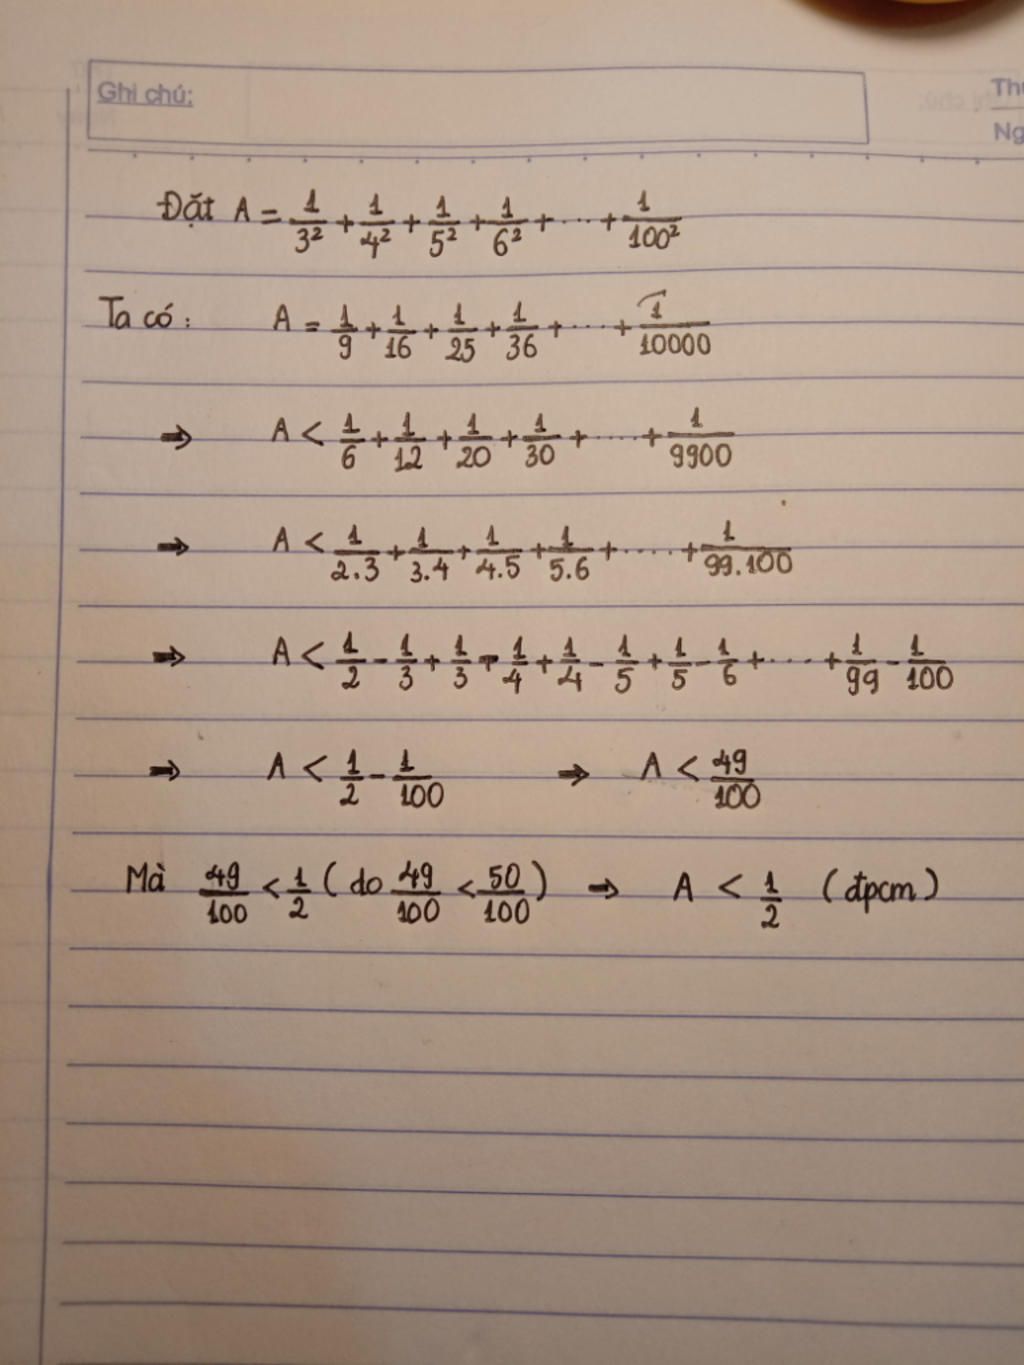 Ghi chú:
Đặt A = 1/3² + 1/4² + 1/5² + 1/6² + ..... + 1/100²
Ta có: A = 1/9 + 1/16 + 1/25 + 1/36 + ..... + 1/10000
⇒ A < 1/6 + 1/12 + 1/20 + 1/30 + ..... + 1/9900
⇒ A < 1/2.3 + 1/3.4 + 1/4.5 + 1/5.6 + ..... + 1/99.100
⇒ A < 1/2 - 1/3 + 1/3 - 1/4 + 1/4 - 1/5 + 1/5 - 1/6 + ..... + 1/99 - 1/100
⇒ A < 1/2 - 1/100 ⇒ A < 49/100
Mà 49/100 < 1/2 ( do 49/100 < 50/100 ) ⇒ A < 1/2 (đpcm)